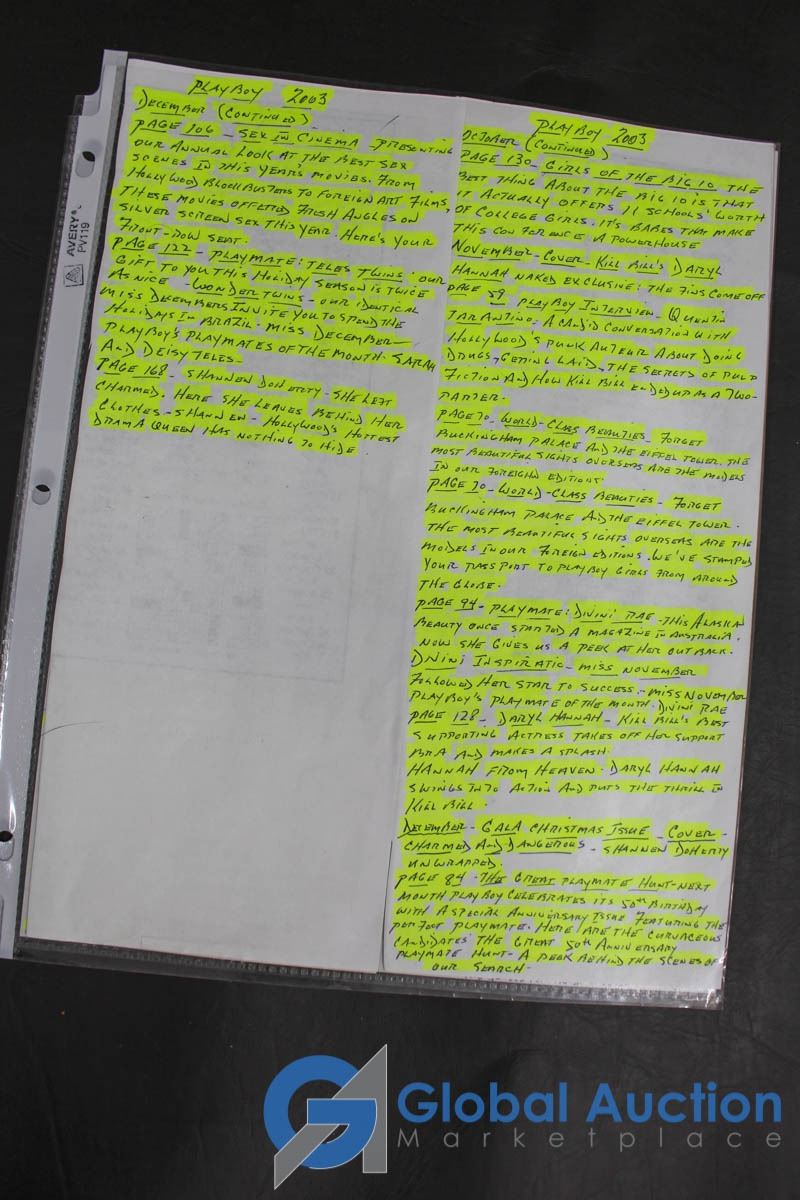 PLAYBOY 2003
DECEMBER (CONTINUED)
PAGE 106 - SEX IN CINEMA - PRESENTING
OUR ANNUAL LOOK AT THE BEST SEX
SCENES IN THIS YEAR'S MOVIES. FROM
HOLLYWOOD BLOCKBUSTERS TO FOREIGN ART FILMS,
THESE MOVIES OFFERED FRESH ANGLES ON
SILVER SCREEN SEX THIS YEAR. HERE'S YOUR
FRONT-ROW SEAT.
PAGE 122 - PLAYMATE: TELES TWINS: OUR
GIFT TO YOU THIS HOLIDAY SEASON IS TWICE
AS NICE - WONDER TWINS - OUR IDENTICAL
MISS DECEMBERS INVITE YOU TO SPEND THE
HOLIDAYS IN BRAZIL - MISS DECEMBER -
PLAYBOY'S PLAYMATES OF THE MONTH - SARAH
AND DEISY TELES -
PAGE 168 - SHANNEN DOHERTY - SHE LEFT
CHARMED. HERE SHE LEAVES BEHIND HER
CLOTHES - SHANNEN - HOLLYWOOD'S HOTTEST
DRAMA QUEEN HAS NOTHING TO HIDE.
PLAYBOY 2003
OCTOBER (CONTINUED)
PAGE 130 - GIRLS OF THE BIG 10. THE
BEST THING ABOUT THE BIG 10 IS THAT
IT ACTUALLY OFFERS 11 SCHOOLS' WORTH
OF COLLEGE GIRLS. IT'S BABES THAT MAKE
THIS CONFERENCE A POWERHOUSE
NOVEMBER - COVER - KILL BILL'S DARYL
HANNAH NAKED EXCLUSIVE: THE FINS COME OFF
PAGE 59 - PLAYBOY INTERVIEW - QUENTIN
TARANTINO - A CANDID CONVERSATION WITH
HOLLYWOOD'S PUNK AUTEUR ABOUT DOING
DRUGS, GETTING LAID, THE SECRETS OF PULP
FICTION AND HOW KILL BILL ENDED UP AS A TWO-
PARTER.
PAGE 70 - WORLD-CLASS BEAUTIES - FORGET
BUCKINGHAM PALACE AND THE EIFFEL TOWER. THE
MOST BEAUTIFUL SIGHTS OVERSEAS ARE THE MODELS
IN OUR FOREIGHN EDITIONS.
PAGE 70 - WORLD-CLASS BEAUTIES - FORGET
BUCKINGHAM PALACE AND THE EIFFEL TOWER.
THE MOST BEAUTIFUL SIGHTS OVERSEAS ARE THE
MODELS IN OUR FOREIGN EDITIONS. WE'VE STAMPED
YOUR PASSPORT TO PLAYBOY GIRLS FROM AROUND
THE GLOBE.
PAGE 94 - PLAYMATE: DIVINI RAE - THIS ALASKAN
BEAUTY ONCE STARTED A MAGAZINE IN AUSTRALIA.
NOW SHE GIVES US A PEEK AT HER OUTBACK.
DIVINI INSPIRATIC - MISS NOVEMBER
FOLLOWED HER STAR TO SUCCESS - MISS NOVEMBER
PLAYBOY'S PLAYMATE OF THE MONTH - DIVINI RAE
PAGE 128 - DARYL HANNAH - KILL BILL'S BEST
SUPPORTING ACTRESS TAKES OFF HER SUPPORT
BRA AND MAKES A SPLASH.
HANNAH FROM HEAVEN - DARYL HANNAH
SWINGS INTO ACTION AND PUTS THE THRILL IN
KILL BILL.
DECEMBER - GALA CHRISTMAS ISSUE - COVER -
CHARMED AND DANGEROUS - SHANNEN DOHERTY
UNWRAPPED.
PAGE 84 - THE GREAT PLAYMATE HUNT - NEXT
MONTH PLAYBOY CELEBRATES ITS 50th BIRTHDAY
WITH A SPECIAL ANNIVERSARY ISSUE FEATURING THE
PERFECT PLAYMATE. HERE ARE THE CURVACEOUS
CANDIDATES THE GREAT 50th ANNIVERSARY
PLAYMATE HUNT - A PEEK BEHIND THE SCENES OF
OUR SEARCH -
AVERY
PV119
Global Auction
Marketplace